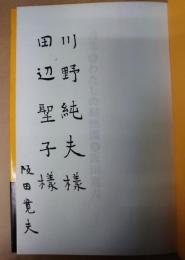 川野純夫様
田辺聖子様
阪田寛夫